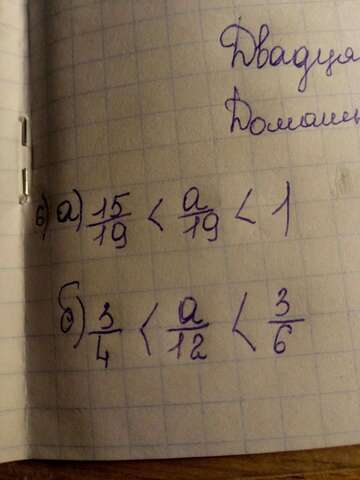 Двадца
Домаш
в) а) 15/19 < a/19 < 1
б) 3/4 < a/12 < 3/6